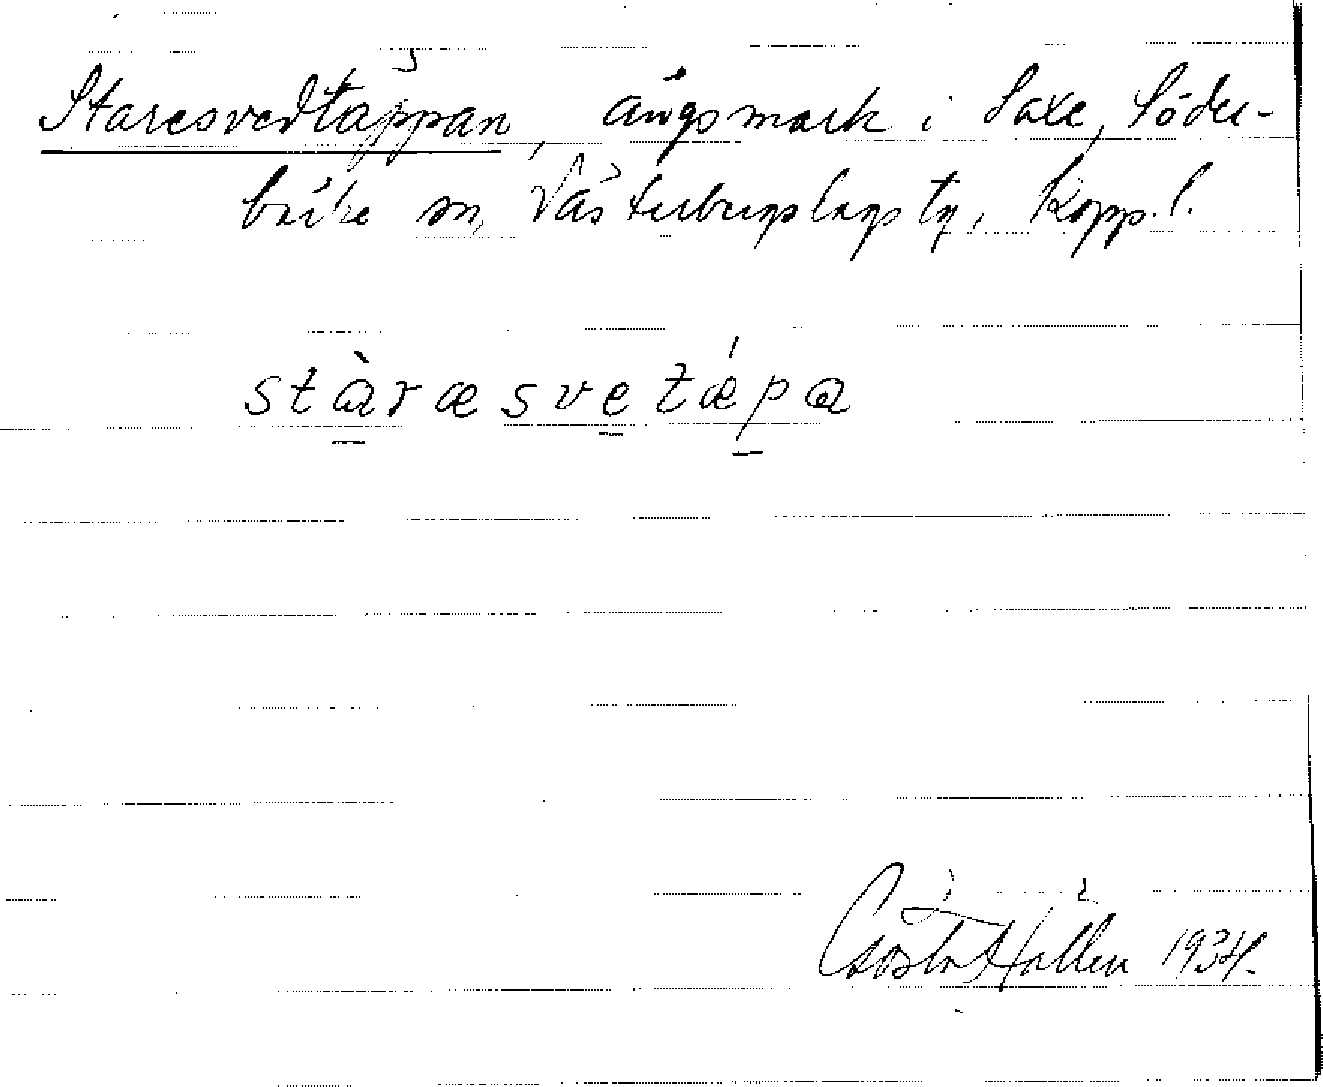 Staresvedtäppan, ängsmark i Saxe, Söder-
bärke sn, Västerbergslags tg, Kopp. l.
stàræsvetǽpa
Gösta Hallén 1934.